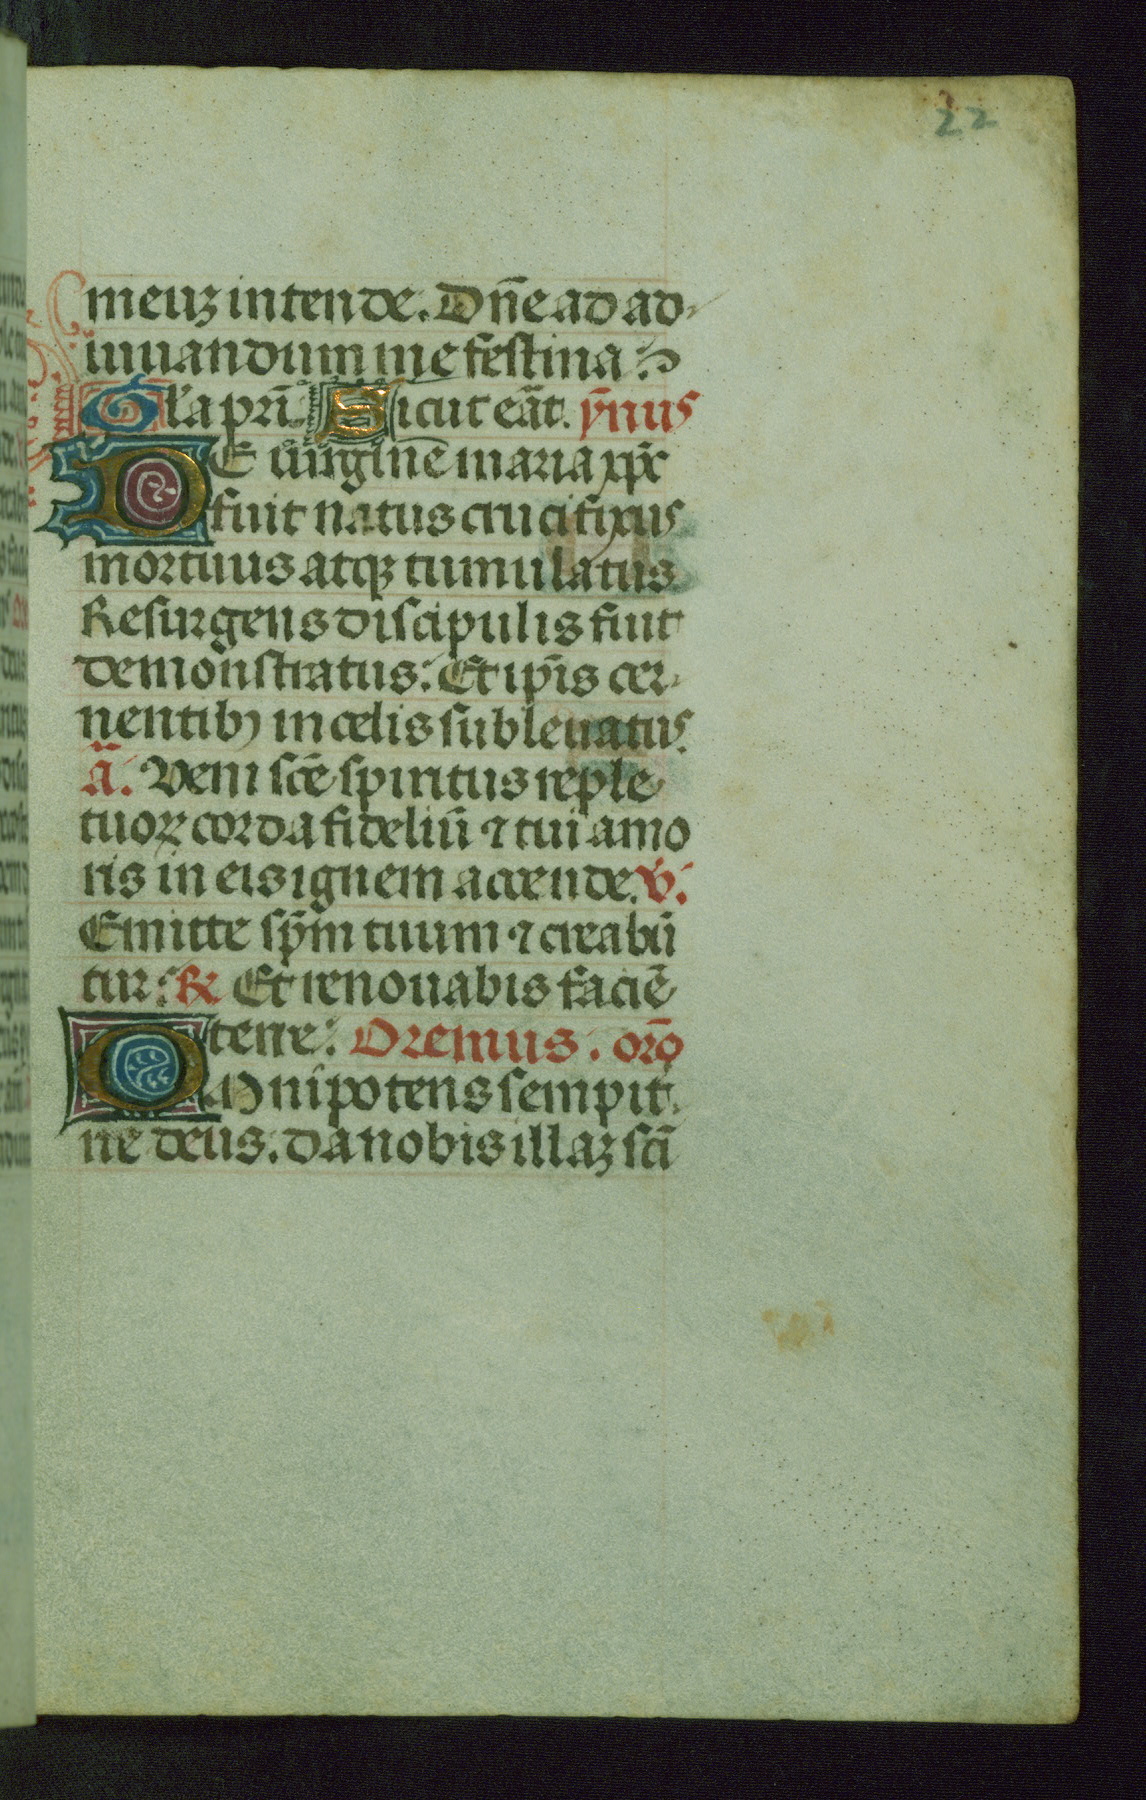 22
meuꝫ intende. Dn̄e ad ad-
iuuandum me festina.
Gl'a pr̄i. Sicut eāt. ẏmus
DE uirgine maria xp̄c
fuit natus crucifixus
mortuus atqꝫ tumulatus
Resurgens discipulis fuit
demonstratus: Et ip̄is cer-
nentibꝰ in celis subleuatus.
ā. Veni scē spiritus reple
tuoꝝ corda fideliū ⁊ tui amo
ris in eis ignem accende. v̄.
Emitte sp̄m tuum ⁊ creabū
tur: ℟ Et renouabis faciē
terre: Oremus. or̄o
OMnipotens sempit̄
ne deus. da nobis illaꝫ sc̄i